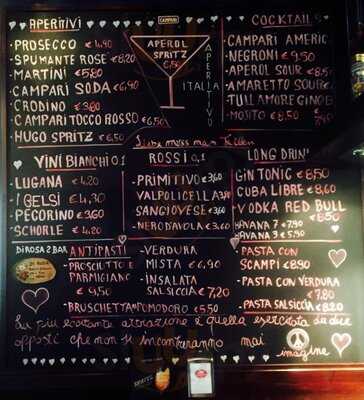 APERITIVI
CAMPARI
COCKTAILS
PROSECCO €4,90
SPUMANTE ROSE €8,20
MARTINI €5,80
CAMPARI SODA €6,90
CRODINO €3,80
CAMPARI TOCCO ROSSO €6,50
HUGO SPRITZ €6,50
APEROL
SPRITZ
€6,50
ITALIA
APERITIVO
CAMPARI AMERIC
NEGRONI €9,50
APEROL SOUR €8,50
AMARETTO SOUR
TULLAMORE GINGE
MOJITO €8,50
VINI BIANCHI 0.1
LUGANA €4,20
I GELSI €4,30
PECORINO €3,60
SCHORLE €4,20
ROSSI 0,1
PRIMITIVO €3,60
VALPOLICELLA 3,80
SANGIOVESE €3,60
NERO D'AVOLA €3,60
LONG DRIN'
GIN TONIC €8,50
CUBA LIBRE €8,60
VODKA RED BULL
€8,50
HAVANA 7 €7,90
HAVANA 3 €5,50
DI ROSA 2 BAR
ANTIPASTI
PROSCIUTTO E
PARMIGIANO
€9,50
BRUSCHETTA POMODORO €5,50
VERDURA
MISTA €6,90
INSALATA
SALSICCIA €7,20
PASTA CON
SCAMPI €8,90
PASTA CON VERDURA
€7,80
PASTA SALSICCIA €8,20
La più esaltante attrazione è quella esercitata da due
opposti che non si incontreranno mai
imagine